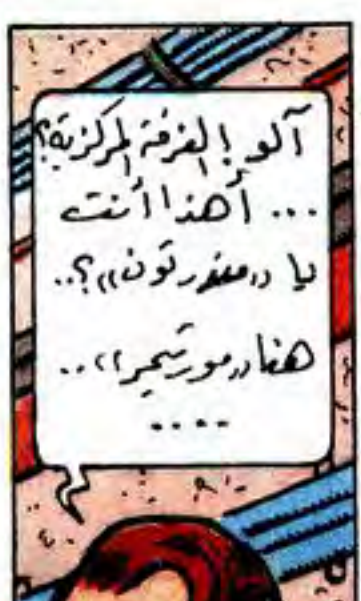 آلو! الغرفة المركزية؟
... أهذا أنت
يا «منورتون»؟..
هنا «مورتيمر»..
....